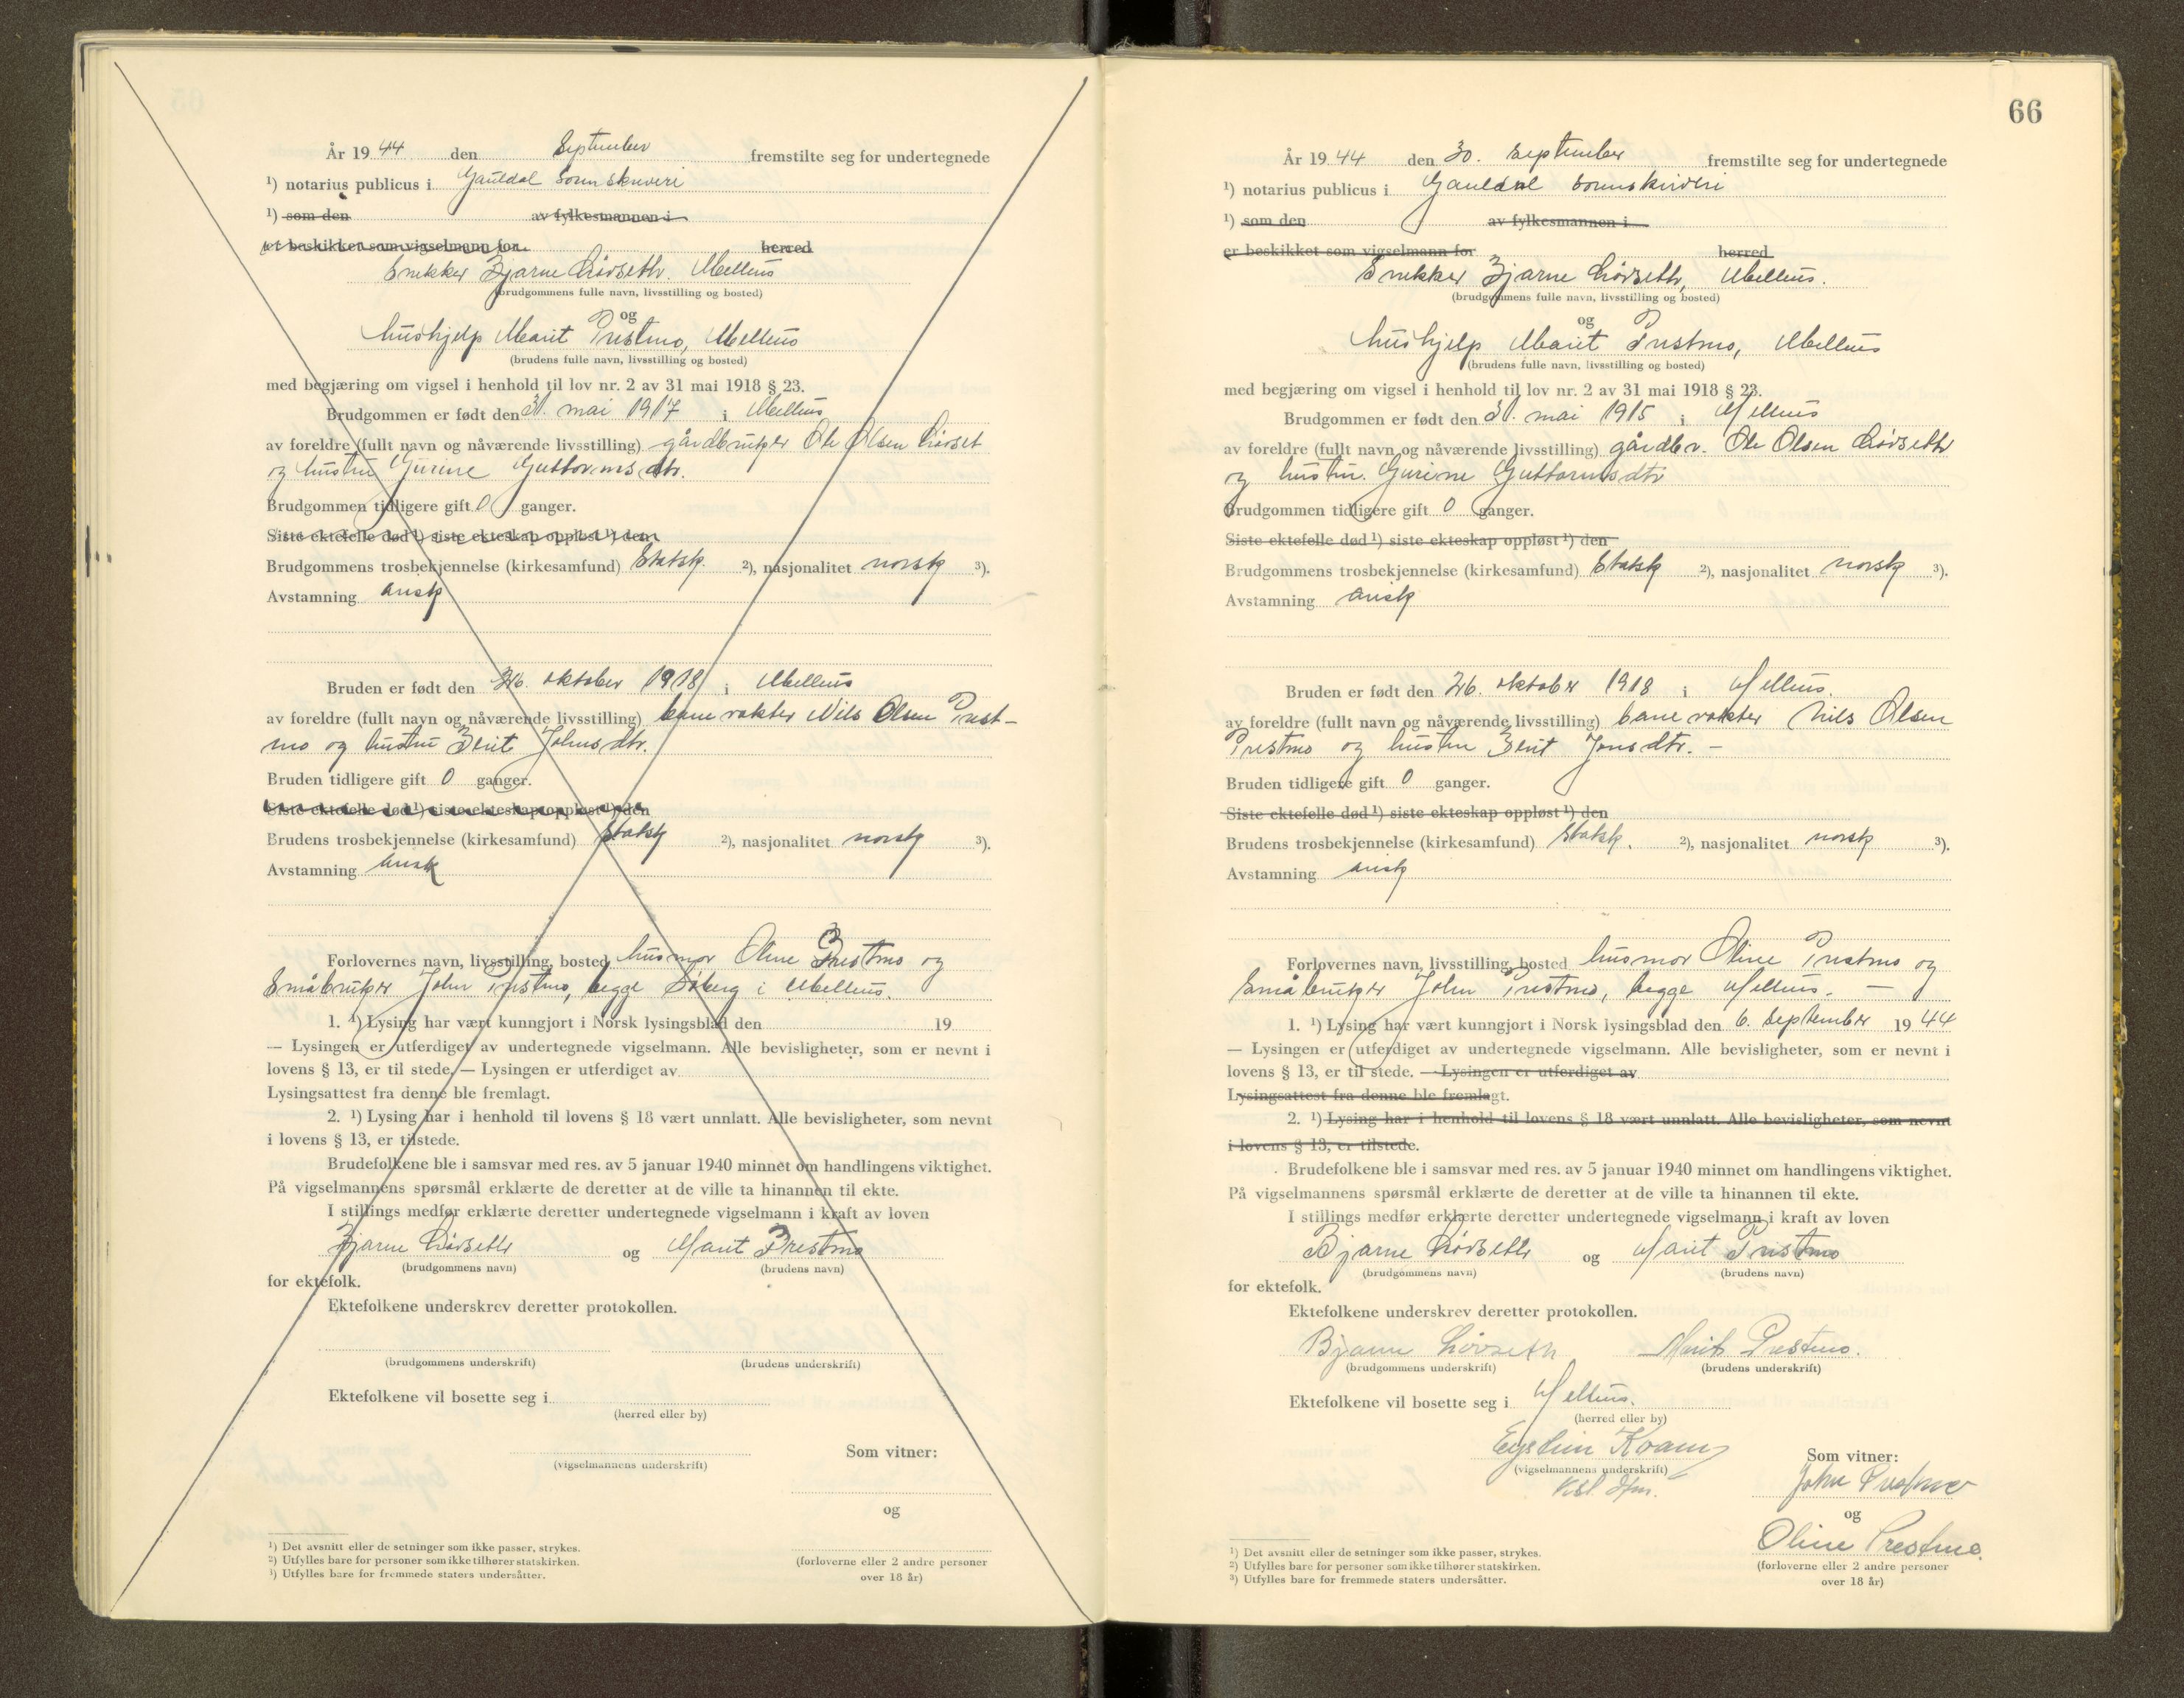 År 19 44 den September fremstilte seg for undertegnede
¹) notarius publicus i Gauldal Sorenskriveri
¹) som den av fylkesmannen i
er beskikket som vigselmann for herred
Snekker Bjarne Løvseth. Melhus
(brudgommens fulle navn, livsstilling og bosted)
og
hushjelp Marit Prestmo, Melhus
(brudens fulle navn, livsstilling og bosted)
med begjæring om vigsel i henhold til lov nr. 2 av 31 mai 1918 § 23.
Brudgommen er født den 31. mai 1917 i Melhus
av foreldre (fullt navn og nåværende livsstilling) gårdbruker Ole Olsen Løvset
og hustru Gurine Guttormsdtr.
Brudgommen tidligere gift 0 ganger.
Siste ektefelle død ¹) siste ekteskap oppløst ¹) den
Brudgommens trosbekjennelse (kirkesamfund) Statsk. ²), nasjonalitet norsk ³).
Avstamning arisk
Bruden er født den 26. oktober 1918 i Melhus
av foreldre (fullt navn og nåværende livsstilling) banevokter Nils Olsen Prest-
mo og hustru Berit Johnsdtr.
Bruden tidligere gift 0 ganger.
Siste ektefelle død ¹) siste ekteskap oppløst ¹) den
Brudens trosbekjennelse (kirkesamfund) Statsk ²), nasjonalitet norsk ³).
Avstamning arisk
Forlovernes navn, livsstilling, bosted husmor Oline Prestmo og
Småbruker John Prestmo, begge Søberg i Melhus.
1. ¹) Lysing har vært kunngjort i Norsk lysingsblad den 19
— Lysingen er utferdiget av undertegnede vigselmann. Alle bevisligheter, som er nevnt i
lovens § 13, er til stede. — Lysingen er utferdiget av
Lysingsattest fra denne ble fremlagt.
2. ¹) Lysing har i henhold til lovens § 18 vært unnlatt. Alle bevisligheter, som nevnt
i lovens § 13, er tilstede.
Brudefolkene ble i samsvar med res. av 5 januar 1940 minnet om handlingens viktighet.
På vigselmannens spørsmål erklærte de deretter at de ville ta hinannen til ekte.
I stillings medfør erklærte deretter undertegnede vigselmann i kraft av loven
Bjarne Løvseth og Marit Prestmo
(brudgommens navn) (brudens navn)
for ektefolk.
Ektefolkene underskrev deretter protokollen.
(brudgommens underskrift) (brudens underskrift)
Ektefolkene vil bosette seg i
(herred eller by)
Som vitner:
(vigselmannens underskrift)
og
¹) Det avsnitt eller de setninger som ikke passer, strykes.
²) Utfylles bare for personer som ikke tilhører statskirken.
³) Utfylles bare for fremmede staters undersåtter.
(forloverne eller 2 andre personer
over 18 år)
66
År 19 44 den 30. september fremstilte seg for undertegnede
¹) notarius publicus i Gauldal sorenskriveri
¹) som den av fylkesmannen i
er beskikket som vigselmann for herred
Snekker Bjarne Løvseth, Melhus.
(brudgommens fulle navn, livsstilling og bosted)
og
hushjelp Marit Prestmo, Melhus
(brudens fulle navn, livsstilling og bosted)
med begjæring om vigsel i henhold til lov nr. 2 av 31 mai 1918 § 23.
Brudgommen er født den 31. mai 1915 i Melhus
av foreldre (fullt navn og nåværende livsstilling) gårdbr. Ole Olsen Løvseth
og hustru. Gurine Guttormsdtr
Brudgommen tidligere gift 0 ganger.
Siste ektefelle død ¹) siste ekteskap oppløst ¹) den
Brudgommens trosbekjennelse (kirkesamfund) Statsk ²), nasjonalitet norsk ³).
Avstamning arisk
Bruden er født den 26. oktober 1918 i Melhus.
av foreldre (fullt navn og nåværende livsstilling) banevokter Nils Olsen
Prestmo og hustru Berit Jonsdtr. –
Bruden tidligere gift 0 ganger.
Siste ektefelle død ¹) siste ekteskap oppløst ¹) den
Brudens trosbekjennelse (kirkesamfund) Statsk. ²), nasjonalitet norsk ³).
Avstamning arisk
Forlovernes navn, livsstilling, bosted husmor Oline Prestmo og
Småbruker John Prestmo, begge Melhus. —
1. ¹) Lysing har vært kunngjort i Norsk lysingsblad den 6. september 19 44
— Lysingen er utferdiget av undertegnede vigselmann. Alle bevisligheter, som er nevnt i
lovens § 13, er til stede. — Lysingen er utferdiget av
Lysingsattest fra denne ble fremlagt.
2. ¹) Lysing har i henhold til lovens § 18 vært unnlatt. Alle bevisligheter, som nevnt
i lovens § 13, er tilstede.
Brudefolkene ble i samsvar med res. av 5 januar 1940 minnet om handlingens viktighet.
På vigselmannens spørsmål erklærte de deretter at de ville ta hinannen til ekte.
I stillings medfør erklærte deretter undertegnede vigselmann i kraft av loven
Bjarne Løvseth og Marit Prestmo
(brudgommens navn) (brudens navn)
for ektefolk.
Ektefolkene underskrev deretter protokollen.
Bjarne Løvseth Marit Prestmo.
(brudgommens underskrift) (brudens underskrift)
Ektefolkene vil bosette seg i Melhus.
(herred eller by)
Eystein Kvam
Som vitner:
(vigselmannens underskrift)
John Prestmo
og
Oline Prestmo.
¹) Det avsnitt eller de setninger som ikke passer, strykes.
²) Utfylles bare for personer som ikke tilhører statskirken.
³) Utfylles bare for fremmede staters undersåtter.
(forloverne eller 2 andre personer
over 18 år)